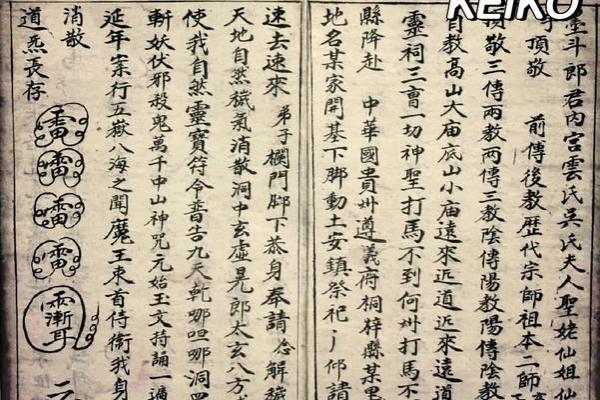 KEIKO
墨斗郎君內宮雲氏吳氏夫人聖姥仙姐仙
可頂敬 前傳後教歷代宗師祖本二師
頂敬三傳兩教兩傳三教陰傳陽教陽傳陰教
自教高山大庙底山小庙遠來近道近來遠道
靈祠三曺一切神聖打馬不到何州打馬不
縣降赴 中華國貴州遵義府桐梓縣某里
地名某家開基下脚動土安鎮祭祀 仰請
速去速來 弟子欄門脚下恭身奉請 念解穢
天地自然穢氣消散洞中玄虛晃郎太玄八方
使我自然靈寶符令普告九天乾哪呾哪洞
斬妖伏邪殺鬼萬千中山神咒元始玉文持誦一遍
延年案行五嶽八海之聞魔王束首侍衛我身
消散
道炁長存
漸耳